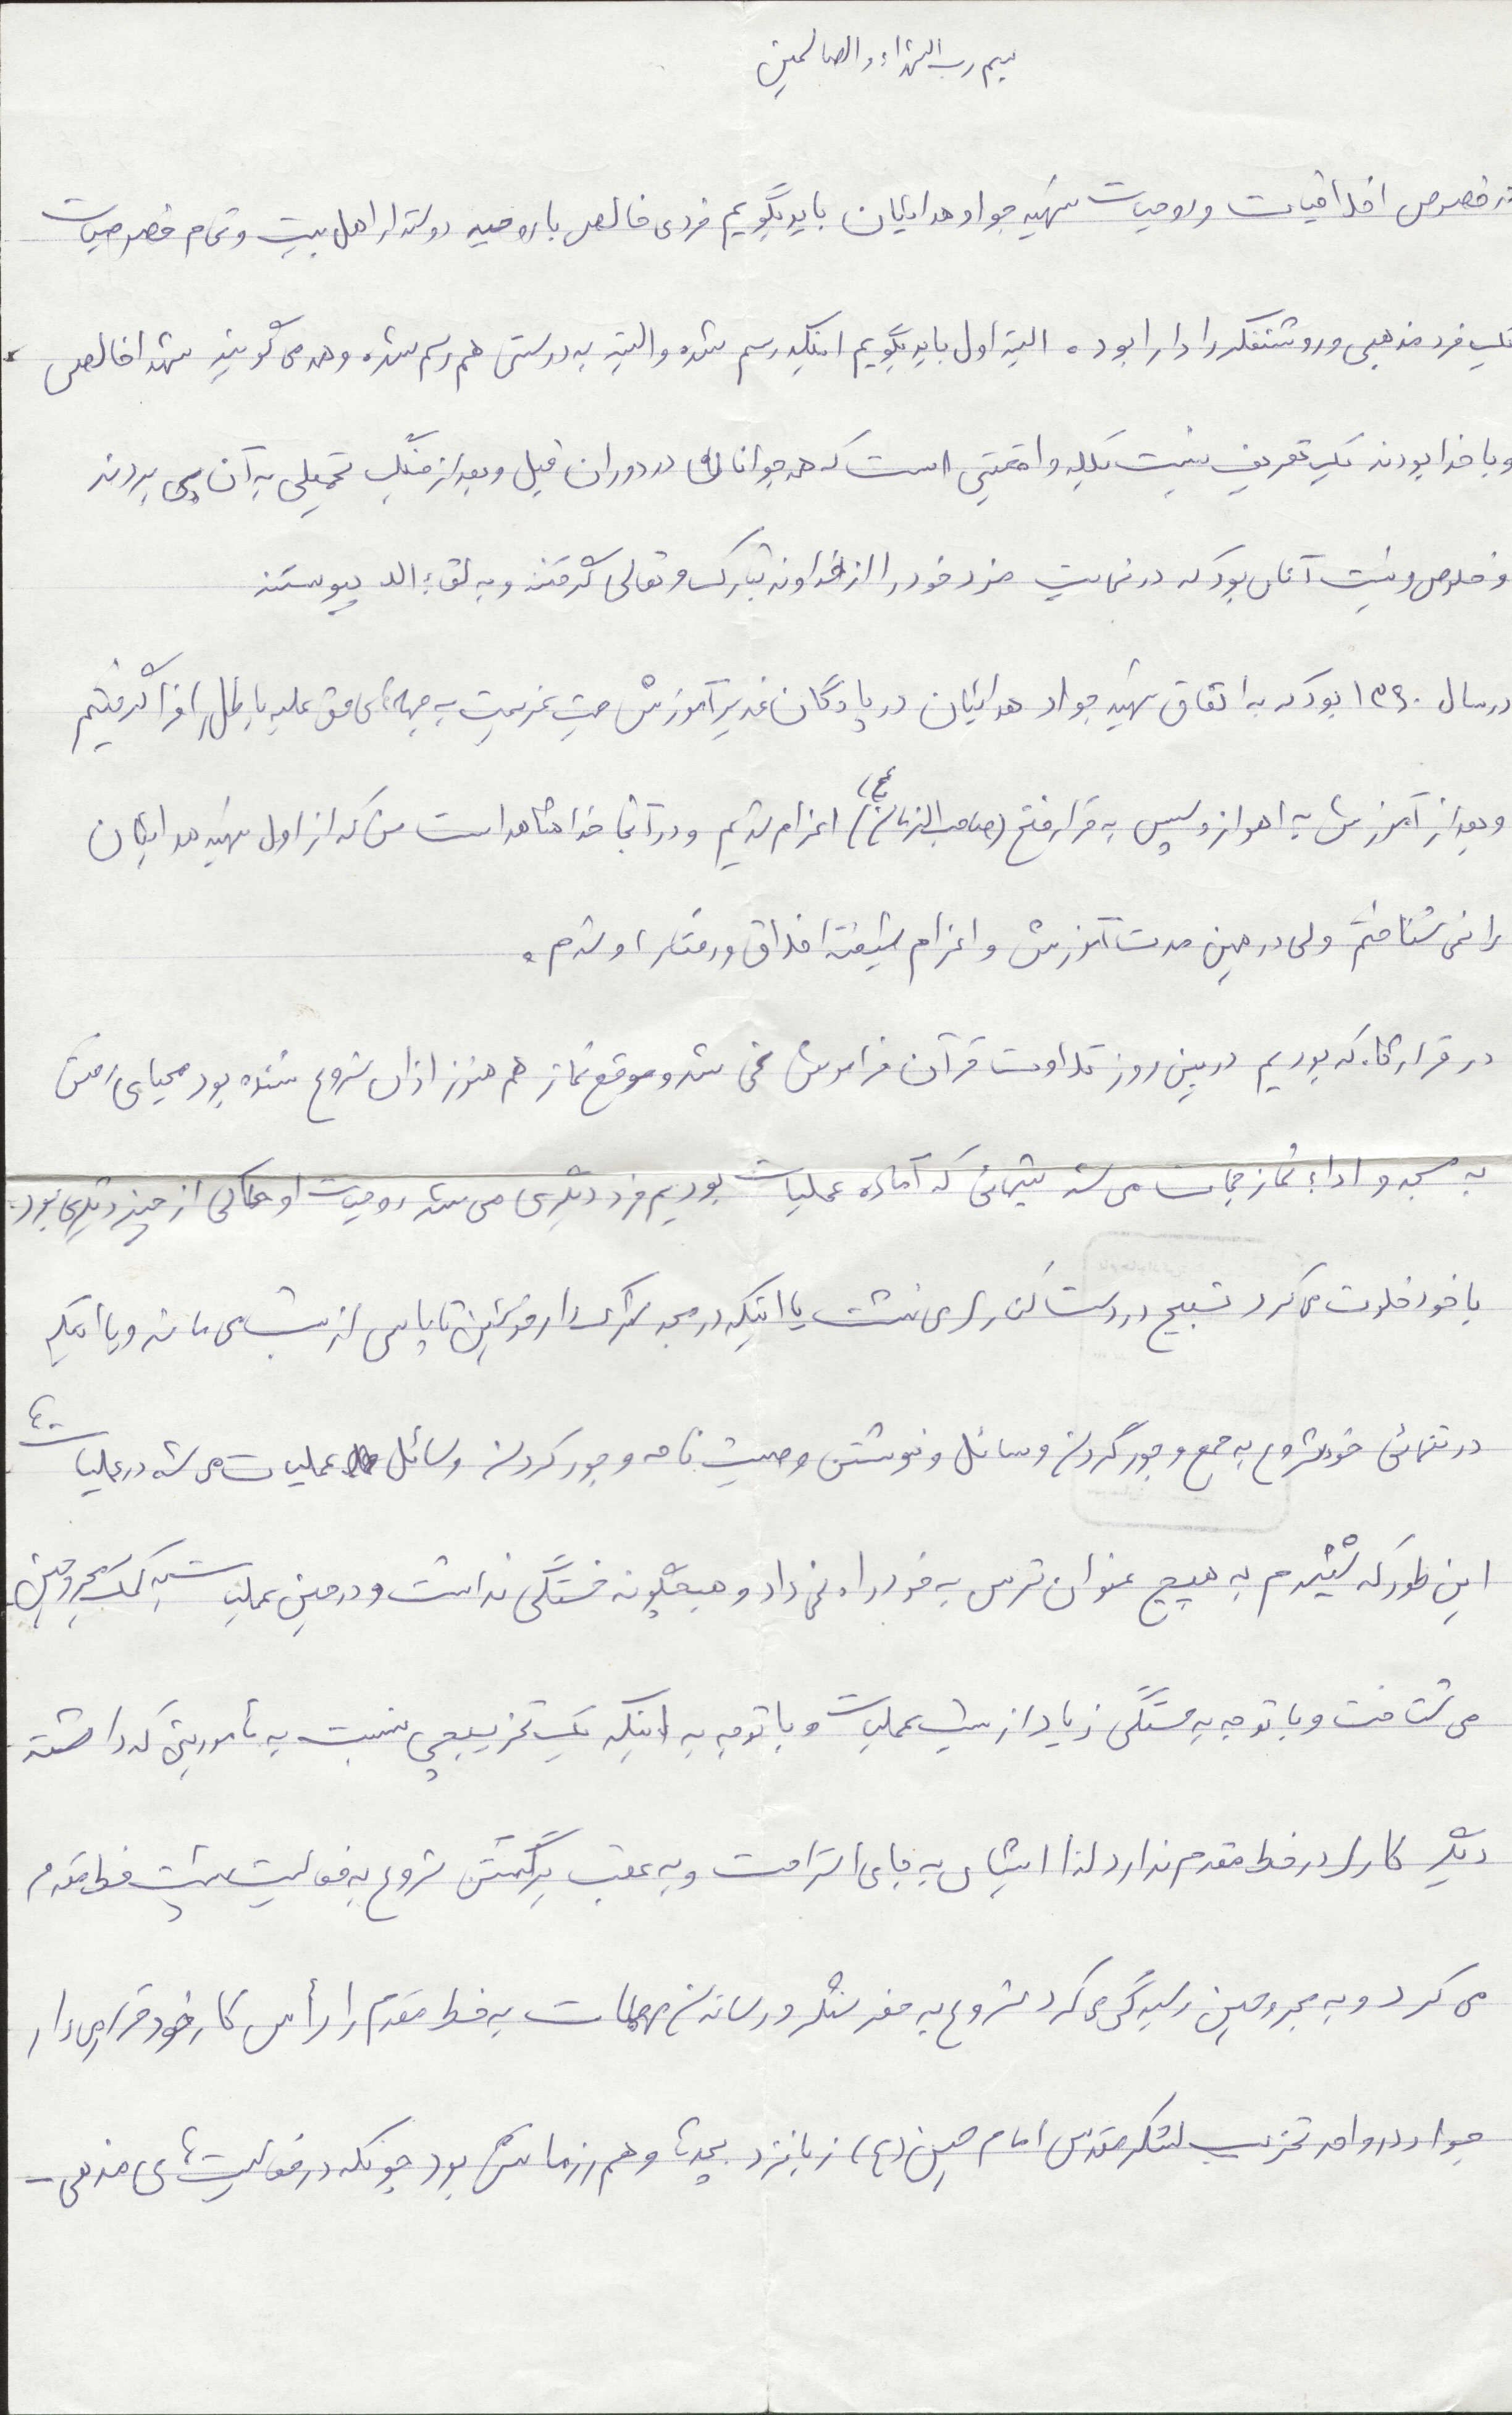 بسم رب الشهداء و الصالحین
در خصوص اخلاقیات و روحیات شهید جواد هدائیان باید بگویم فردی خالص با روحیه دوستدار اهل بیت و تمام خصوصیات
یک فرد مذهبی و روشنفکر را دارا بود. البته اول باید بگویم اینکه رسم شده و البته به درستی هم رسم شده و همه می گویند شهدا خالص
و با خدا بودند یک تعریف نیست بلکه واقعیتی است که همه جوانان در دوران قبل و بعد از جنگ تحمیلی به آن پی بردند
و خلوص و نیت آنان بود که در نهایت مزد خود را از خداوند تبارک و تعالی گرفتند و به لقاء الله پیوستند
در سال ۱۳۶۰ بود که به اتفاق شهید جواد هدائیان در پادگان غدیر آموزش جهت عزیمت به جبهه های حق علیه باطل را فرا گرفتیم
و بعد از آموزش به اهواز و سپس به قرار فتح (صاحب الزمان (عج)) اعزام شدیم و در آنجا خدا شاهد است من که از اول شهید هدائیان
را نمی شناختم ولی در همین مدت آموزش و اعزام شیفته اخلاق و رفتار او شدم.
در قرارگاه که بودیم در بین روز تلاوت قرآن فراموش نمی شد و موقع نماز هم هنوز اذان شروع نشده بود مهیای رفتن
به مسجد و اداء نماز جماعت می شد شبهائی که آماده عملیات بودیم فرد دیگری می شد روحیات او حاکی از چیز دیگری بود.
با خود خلوت می کرد تسبیح در دست کناری می نشست یا اینکه در مسجد تا پاسی از شب می ماند و یا اینکه
در تنهائی خود شروع به جمع و جور کردن وسائل و نوشتن وصیت نامه و جور کردن وسائل عملیات می شد در عملیات ها
این طور که شنیدم به هیچ عنوان ترس به خود راه نمی داد و هیچگونه خستگی نداشت و در حین عملیات به کمک مجروحین
می شتافت و با توجه به خستگی زیاد از شب عملیات و با توجه به اینکه یک تخریبچی نسبت به مأموریتی که داشته
دیگر کاری در خط مقدم ندارد لذا ایشان به جای استراحت و به عقب برگشتن شروع به فعالیت پشت خط مقدم
می کرد و به مجروحین رسیدگی می کرد شروع به حفر سنگر و رساندن مهمات به خط مقدم را رأس کار خود قرار می داد
جواد در واحد تخریب لشکر مقدس امام حسین (ع) زبانزد بچه ها و هم رزمانش بود چونکه در فعالیت های مذهبی -